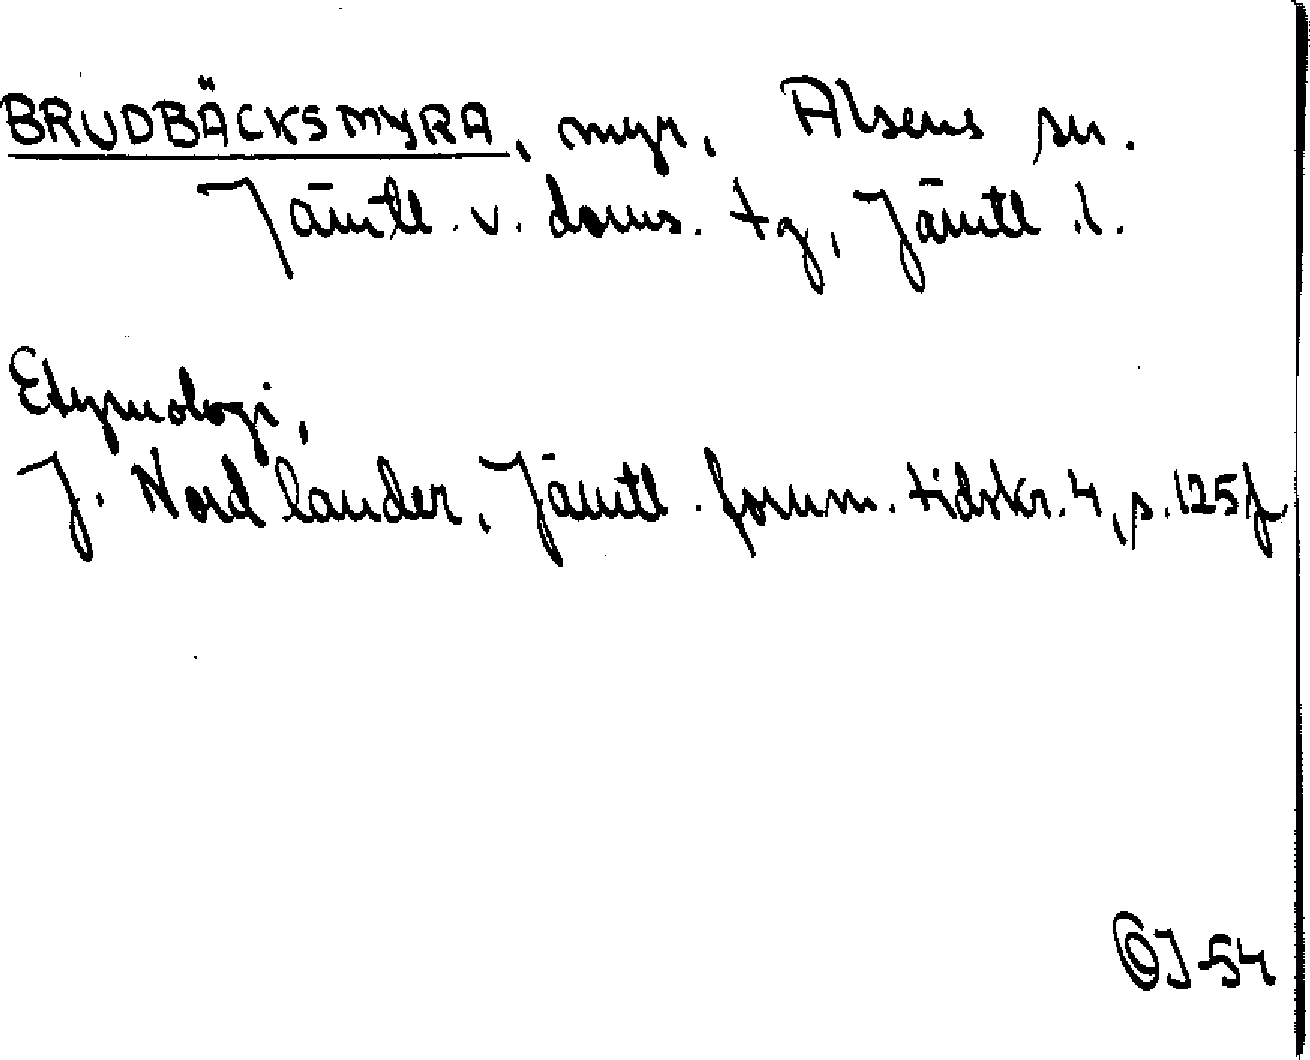 BRUDBÄCKSMYRA, myr, Alsens sn.
Jämtl. v. doms. tg, Jämtl. l.
Etymologi,
J. Nordlander, Jämtl. fornm. tidskr. 4, s. 125 f
OJ-54